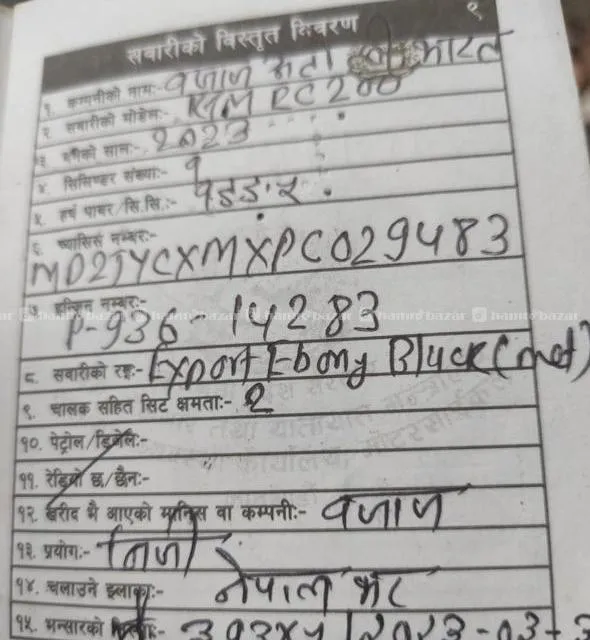 १
सवारीको विस्तृत विवरण
१. कम्पनीको नामः- वजाज अटो भारत
२. सवारीको मोडेलः- KTM RC 200
३. बनेको सालः- 2023
४. सिलिण्डर संख्याः- १
५. हर्ष पावर/सि.सि.ः-
६. च्यासिस नम्बरः-
MD2JYCXMXPC029483
७. इन्जिन नम्बरः-
P-936- 14283
hamrobazar hamrobazar hamrobazar
८. सवारीको रङ्गः- Export Ebony Black (met)
९. चालक सहित सिट क्षमताः- 2
१०. पेट्रोल/डिजेलः-
११. रेडियो छ/छैनः-
१२. खरीद भै आएको मानिस वा कम्पनीः- वजाज
१३. प्रयोगः- निजी
१४. चलाउने इलाकाः- नेपाल भर
१५. भन्सारको